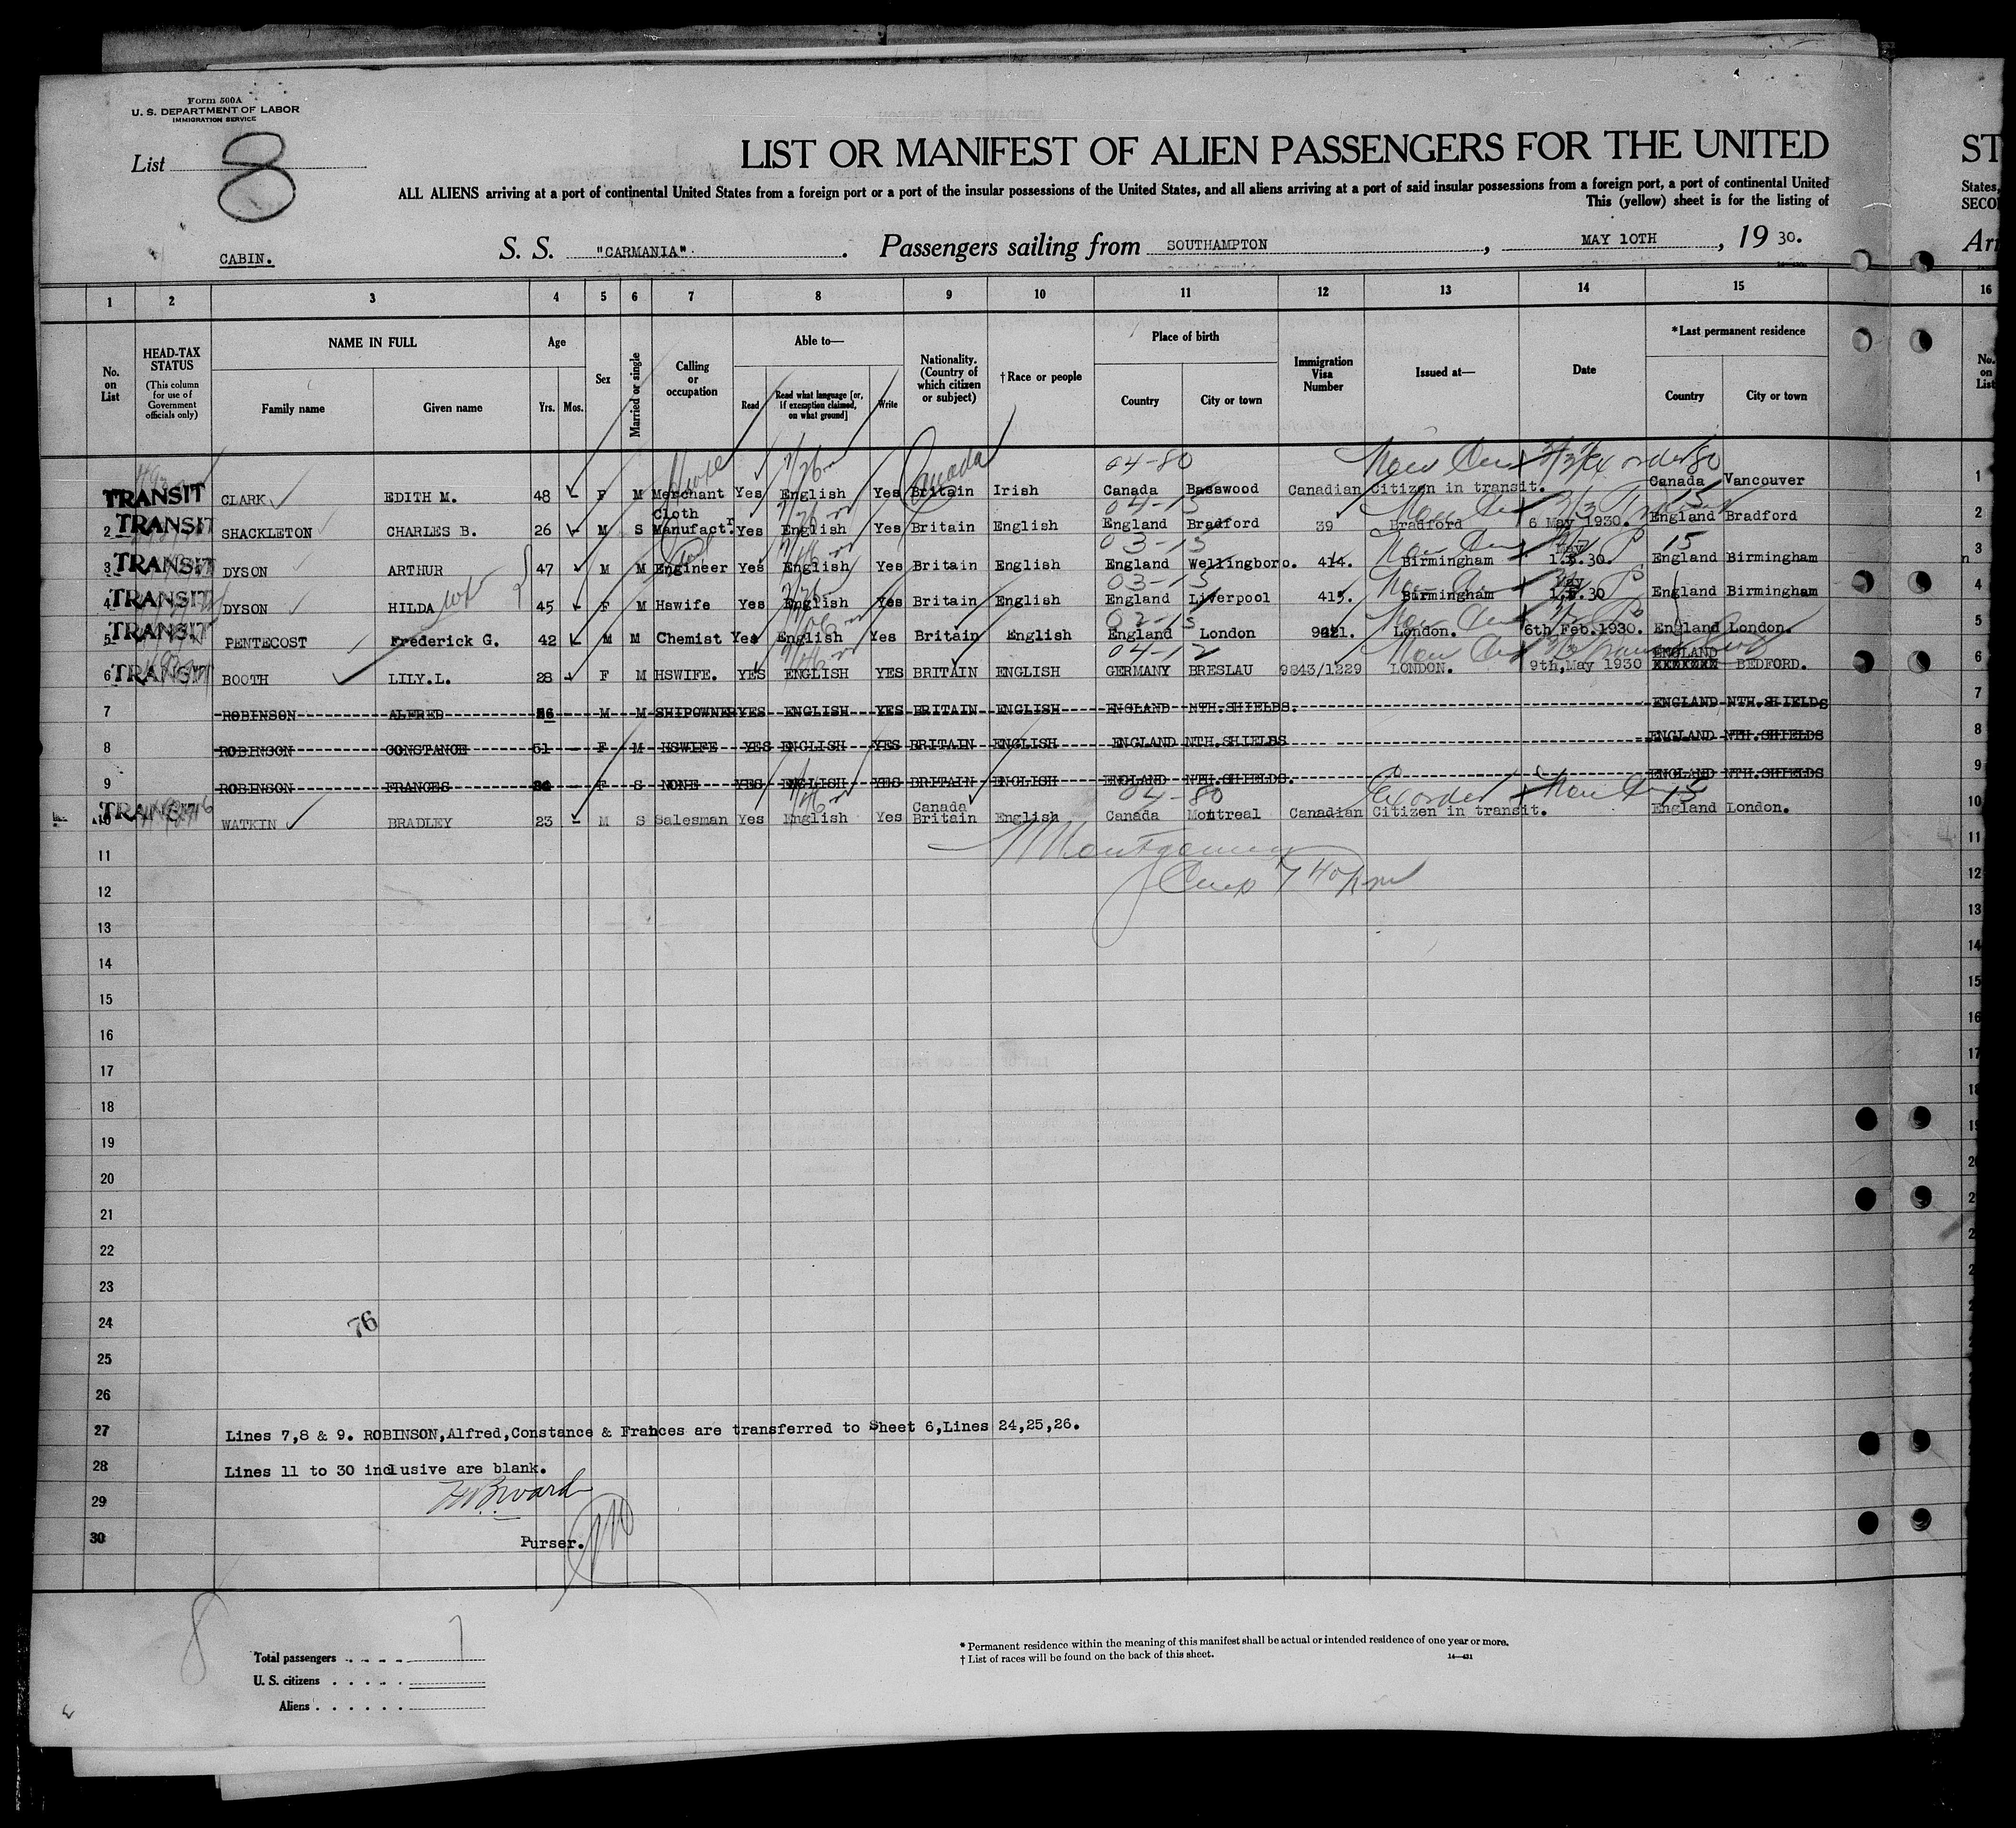 Form 500A
U. S. DEPARTMENT OF LABOR
IMMIGRATION SERVICE
List 8
LIST OR MANIFEST OF ALIEN PASSENGERS FOR THE UNITED ST
ALL ALIENS arriving at a port of continental United States from a foreign port or a port of the insular possessions of the United States, and all aliens arriving at a port of said insular possessions from a foreign port, a port of continental United States,
This (yellow) sheet is for the listing of
CABIN.
S. S. "CARMANIA". Passengers sailing from SOUTHAMPTON, MAY 10TH, 19 30.
1 2 3 4 5 6 7 8 9 10 11 12 13 14 15 16
No. on List
HEAD-TAX STATUS
(This column for use of Government officials only)
NAME IN FULL
Family name Given name
Age
Yrs. Mos.
Sex
Married or single
Calling or occupation
Able to—
Read Read what language [or, if exemption claimed, on what ground] Write
Nationality. (Country of which citizen or subject)
†Race or people
Place of birth
Country City or town
Immigration Visa Number
Issued at—
Date
*Last permanent residence
Country City or town
No. on List
TRANSIT CLARK EDITH M. 48 F M Merchant Yes English Yes Britain Canada Irish 04-80 Canada Basswood Canadian Citizen in transit. Canada Vancouver 1
2 TRANSIT SHACKLETON CHARLES B. 26 M S Cloth Manufact. Yes English Yes Britain English 04-13 England Bradford 39 Bradford 6 May 1930. 15 England Bradford 2
3 TRANSIT DYSON ARTHUR 47 M M Engineer Yes English Yes Britain English 03-13 England Wellingboro. 414. Birmingham 1.5.30. May 15 England Birmingham 3
4 TRANSIT DYSON HILDA 45 F M Hswife Yes English Yes Britain English 03-13 England Liverpool 415. Birmingham 1.5.30 May England Birmingham 4
5 TRANSIT PENTECOST Frederick G. 42 M M Chemist Yes English Yes Britain English England London London. 6th Feb.1930. England London. 5
6 TRANSIT BOOTH LILY.L. 28 F M HSWIFE. YES ENGLISH YES BRITAIN ENGLISH 04-12 GERMANY BRESLAU 9843/1229 LONDON. 9th,May 1930 ENGLAND BEDFORD. 6
7 ROBINSON ALFRED M M SHIPOWNER YES ENGLISH YES BRITAIN ENGLISH ENGLAND NTH.SHIELDS. ENGLAND NTH.SHIELDS 7
8 ROBINSON CONSTANCE 51 F M HSWIFE YES ENGLISH YES BRITAIN ENGLISH ENGLAND NTH.SHIELDS ENGLAND NTH.SHIELDS 8
9 ROBINSON FRANCES F S NONE YES ENGLISH YES BRITAIN ENGLISH ENGLAND NTH.SHIELDS. ENGLAND NTH.SHIELDS 9
10 TRANSIT WATKIN BRADLEY 23 M S Salesman Yes English Yes Canada Britain English 04-80 Canada Montreal Canadian Citizen in transit. 15 England London. 10
11 11
12 12
13 13
14 14
15 15
16 16
17 17
18 18
19
20
21
22
23
24 76
25
26
27 Lines 7,8 & 9. ROBINSON,Alfred,Constance & Frances are transferred to Sheet 6,Lines 24,25,26.
28 Lines 11 to 30 inclusive are blank.
29
30 Purser.
8
Total passengers 7
U. S. citizens
Aliens
* Permanent residence within the meaning of this manifest shall be actual or intended residence of one year or more.
† List of races will be found on the back of this sheet.
14—431